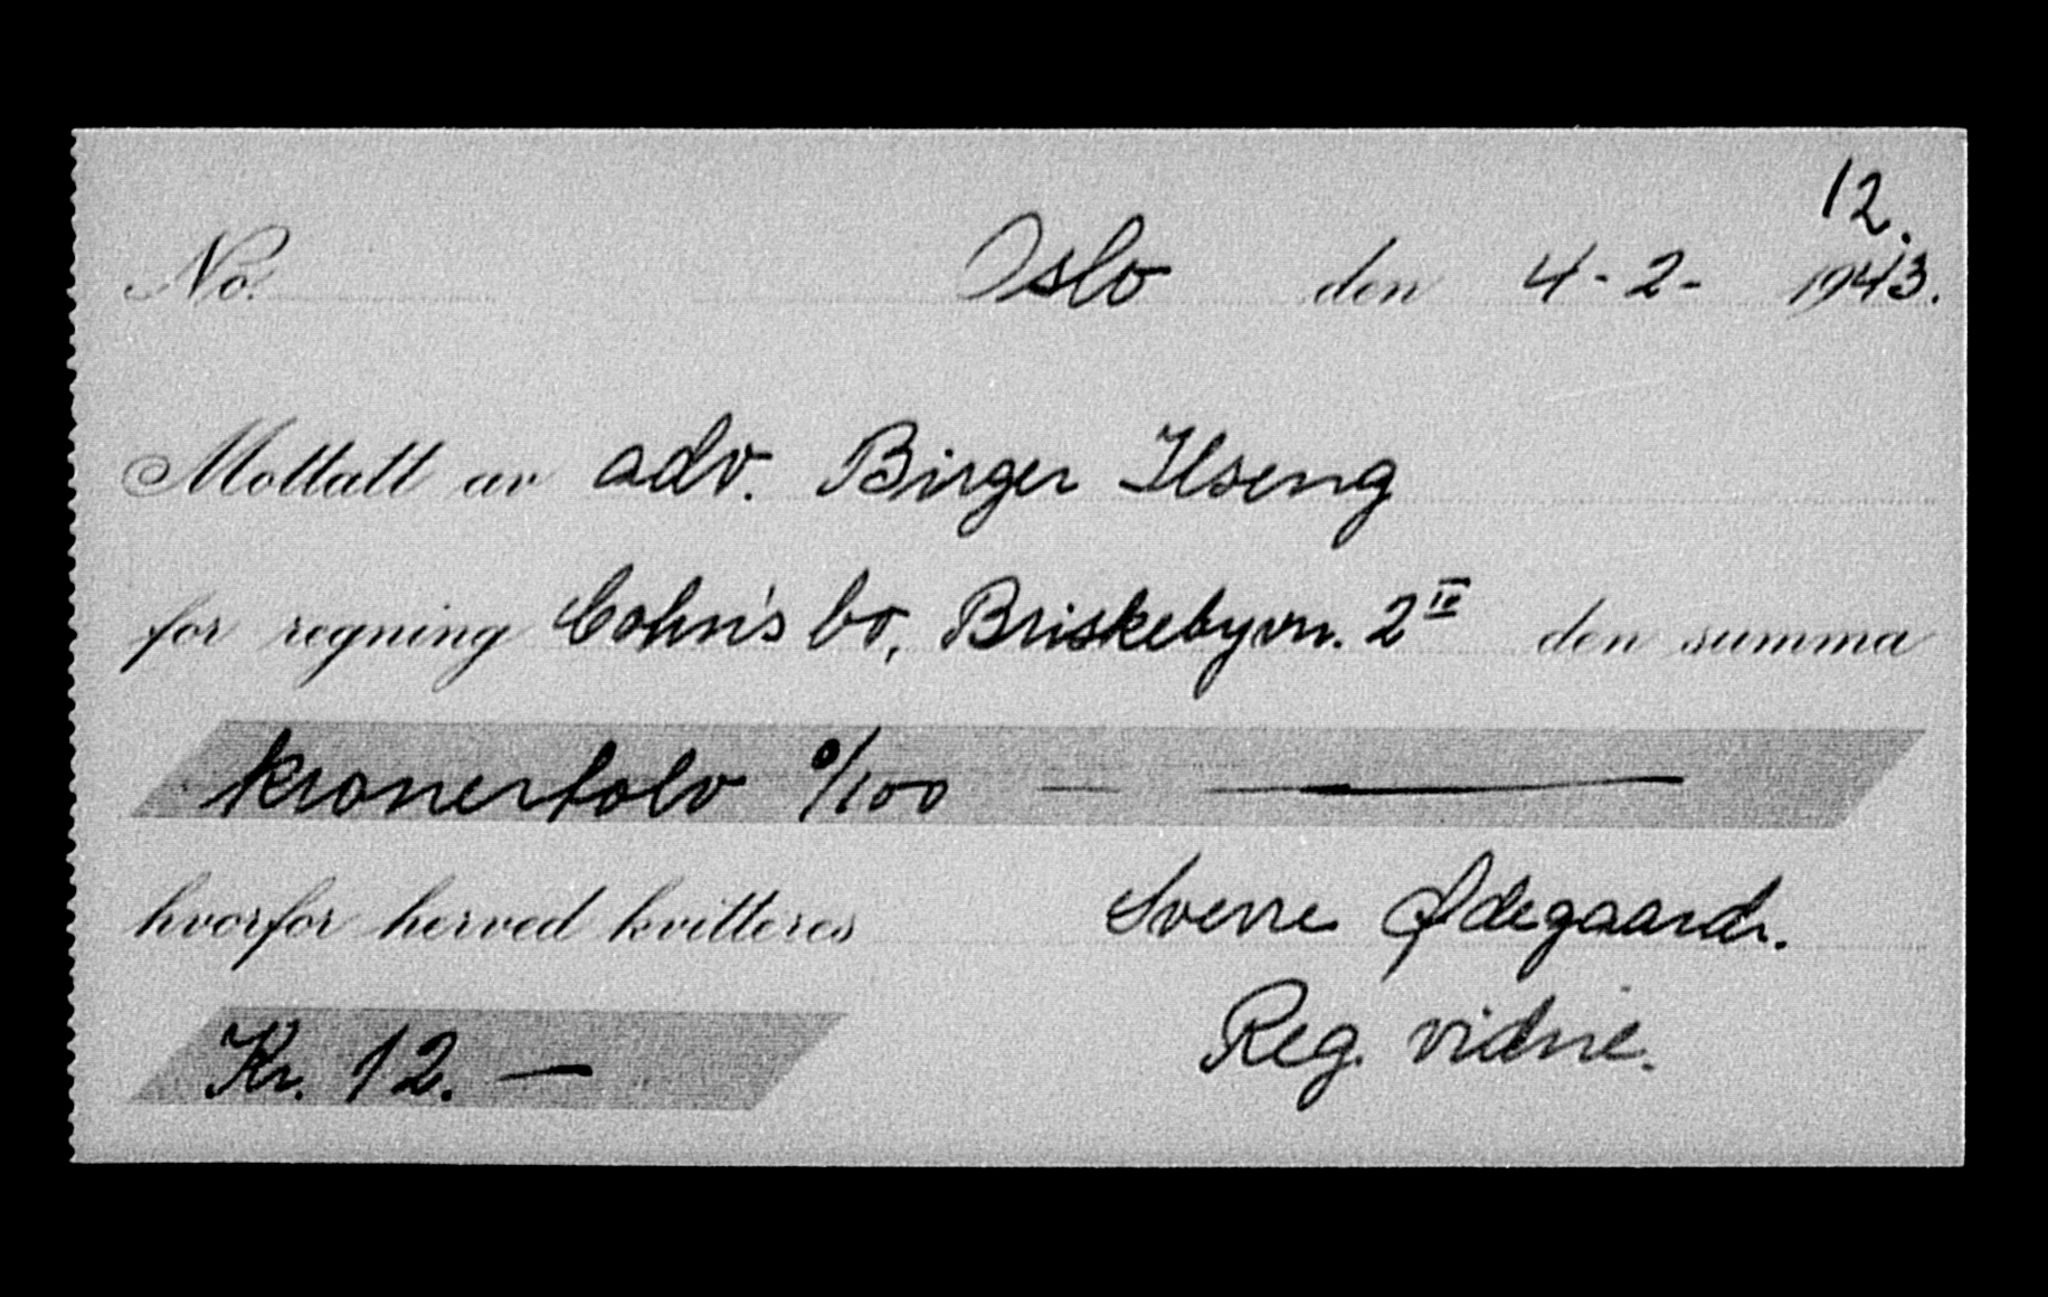 12.
No. Oslo den 4-2- 1943.
Mottatt av adv. Birger Ilseng
for regning Cohn's bo, Briskebyvn. 2 IV den summa
kronertolv 0/100 — —
hvorfor herved kvitteres Sverre Ødegaard.
Reg. vidne.
Kr. 12. —